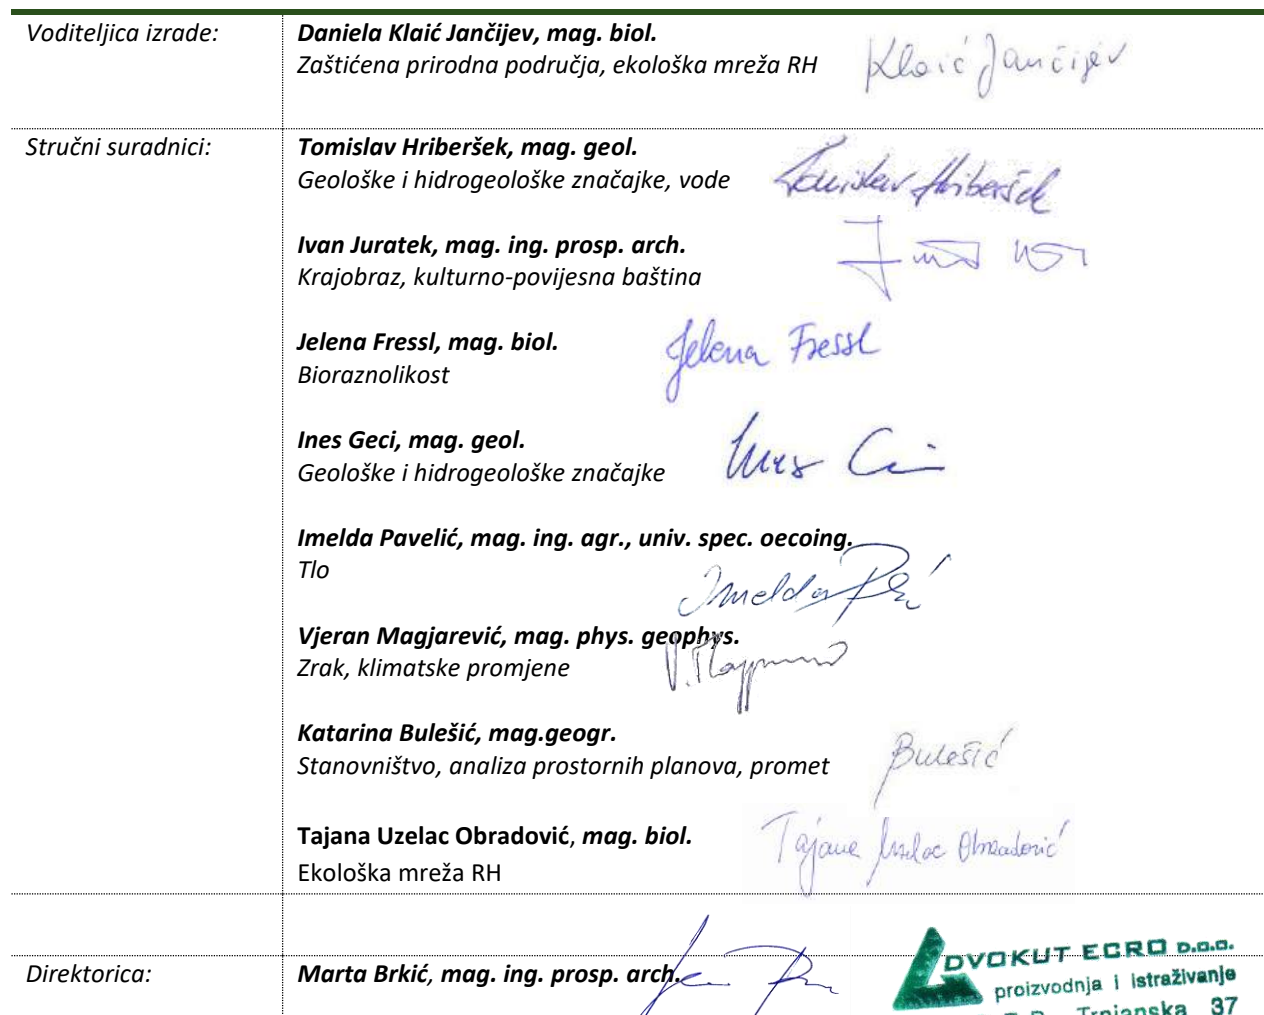 Voditeljica izrade:
Daniela Klaić Jančijev, mag. biol.
Zaštićena prirodna područja, ekološka mreža RH
Klaić Jančijev
Stručni suradnici:
Tomislav Hriberšek, mag. geol.
Geološke i hidrogeološke značajke, vode
Tomislav Hriberšek
Ivan Juratek, mag. ing. prosp. arch.
Krajobraz, kulturno-povijesna baština
Jelena Fressl, mag. biol.
Bioraznolikost
Jelena Fressl
Ines Geci, mag. geol.
Geološke i hidrogeološke značajke
Ines
Imelda Pavelić, mag. ing. agr., univ. spec. oecoing.
Tlo
Imelda
Vjeran Magjarević, mag. phys. geophys.
Zrak, klimatske promjene
Katarina Bulešić, mag.geogr.
Stanovništvo, analiza prostornih planova, promet
Bulešić
Tajana Uzelac Obradović, mag. biol.
Ekološka mreža RH
Tajana Uzelac Obradović
Direktorica:
Marta Brkić, mag. ing. prosp. arch.
DVOKUT ECRO D.O.O.
proizvodnja i istraživanje
Trnjanska 37